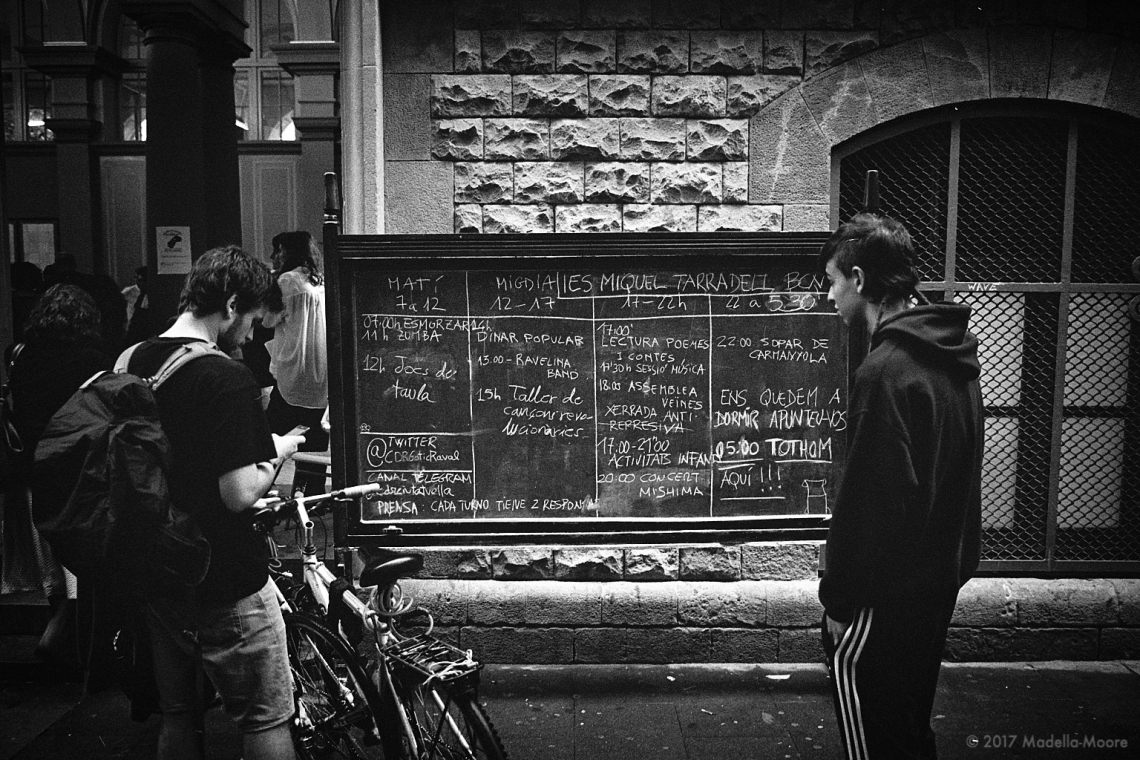 IES MIQUEL TARRADELL BCN
MATÍ
7 a 12
07:00h ESMORZAR
11h ZUMBA
12h Jocs de
taula
@ TWITTER
CDRGòticRaval
CANAL TELEGRAM
PRENSA: CADA TURNO TIENE 2 RESPONS
MIGDIA
12-17
14h
DINAR POPULAR
13:00-RAVELINA
BAND
15h Taller de
cançons revo-
lucionàries
17-22h
17:00'
LECTURA POEMES
I CONTES
SESSIÓ MÚSICA
18:00 ASSEMBLEA
VEINES
XERRADA ANTI
REPRESIVA
17:00-21:00
ACTIVITATS INFANT
20:00 CONCERT
MISHIMA
22 a 5:30
22:00 SOPAR DE
CARMANYOLA
ENS QUEDEM A
DORMIR APUNTEU-VOS
05:00 TOTHOM
AQUÍ!!!
WAVE
© 2017 Madella-Moore